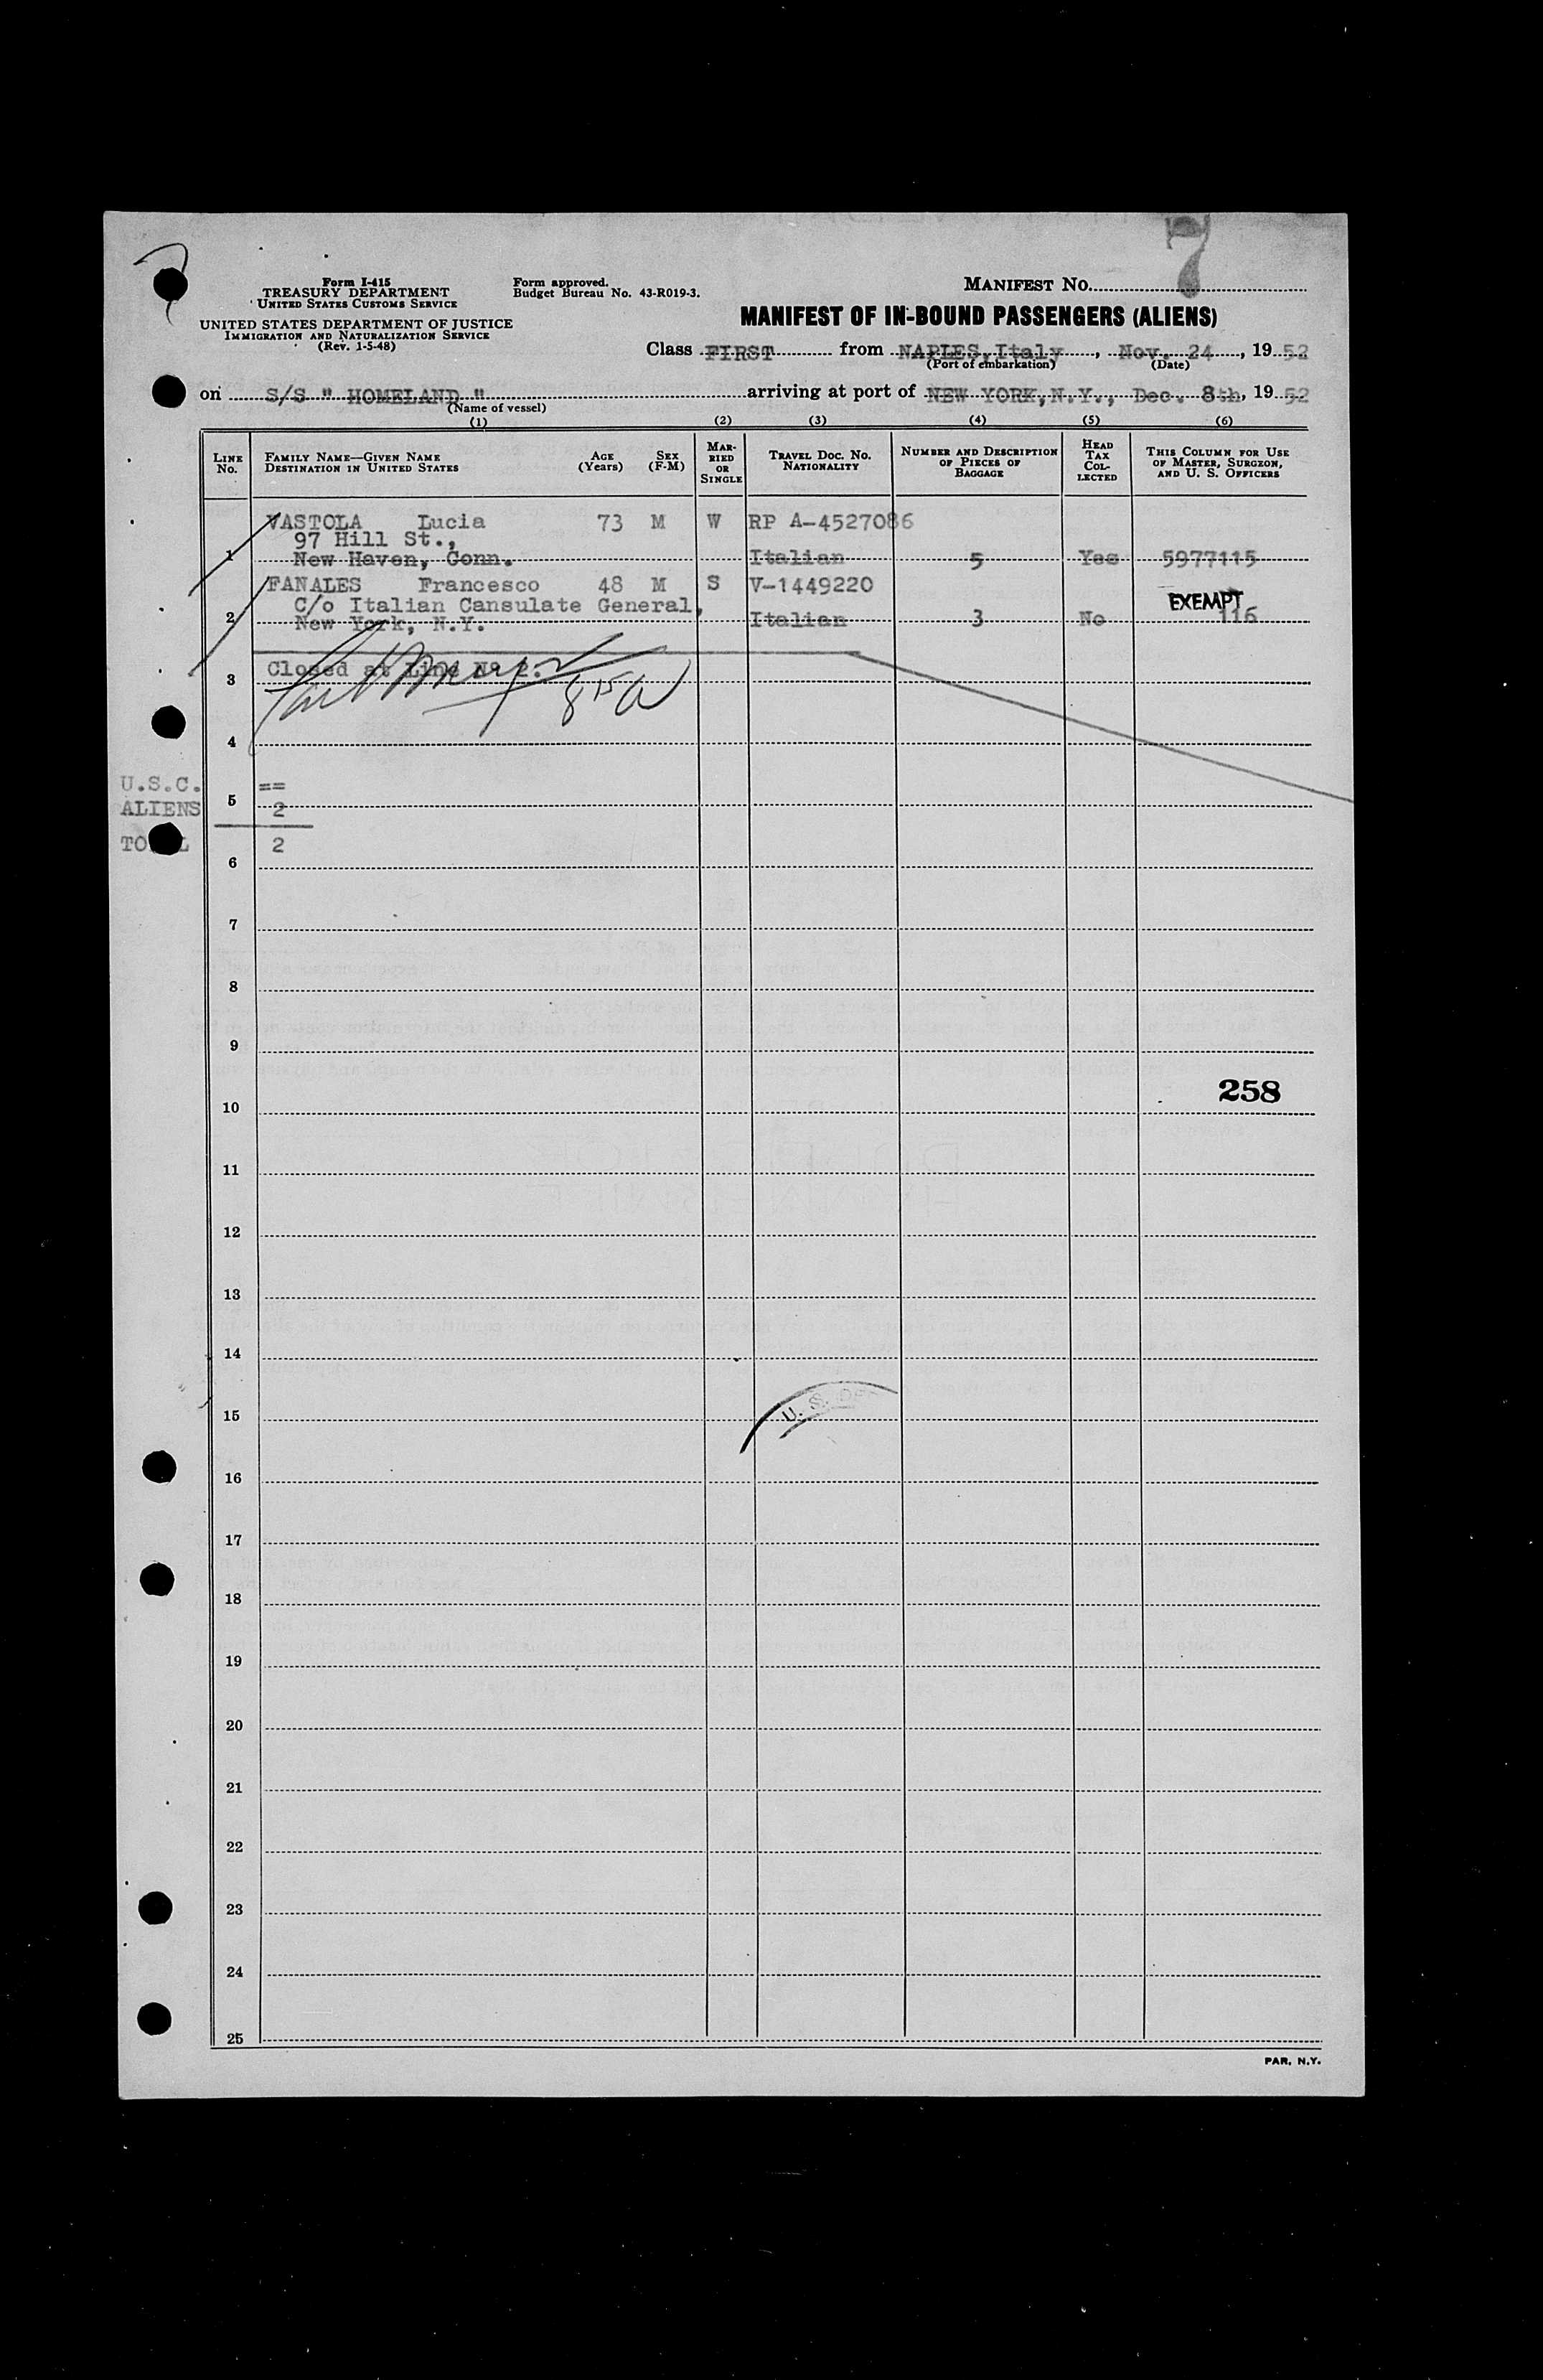 7
Form I-415
TREASURY DEPARTMENT
UNITED STATES CUSTOMS SERVICE
UNITED STATES DEPARTMENT OF JUSTICE
IMMIGRATION AND NATURALIZATION SERVICE
(Rev. 1-5-48)
Form approved.
Budget Bureau No. 43-R019-3.
MANIFEST NO. 7
MANIFEST OF IN-BOUND PASSENGERS (ALIENS)
Class FIRST from NAPLES, Italy, Nov. 24, 1952
(Port of embarkation) (Date)
on S/S " HOMELAND " arriving at port of NEW YORK, N.Y., Dec. 8th, 1952
(Name of vessel)
(1) (2) (3) (4) (5) (6)
LINE NO. FAMILY NAME—GIVEN NAME DESTINATION IN UNITED STATES AGE (Years) SEX (F-M) MARRIED OR SINGLE TRAVEL DOC. NO. NATIONALITY NUMBER AND DESCRIPTION OF PIECES OF BAGGAGE HEAD TAX COLLECTED THIS COLUMN FOR USE OF MASTER, SURGEON, AND U. S. OFFICERS
VASTOLA Lucia 73 M W RP A-4527086
97 Hill St.,
1 New Haven, Conn. Italian 5 Yes 5977115
FANALES Francesco 48 M S V-1449220
C/o Italian Cansulate General, EXEMPT
2 New York, N.Y. Italian 3 No 116
3 Closed at Line Nº 2.
4
U.S.C. ==
5
ALIENS 2
TOTAL 2
6
7
8
9
258
10
11
12
13
14
U. S. DE
15
16
17
18
19
20
21
22
23
24
25
PAR, N.Y.